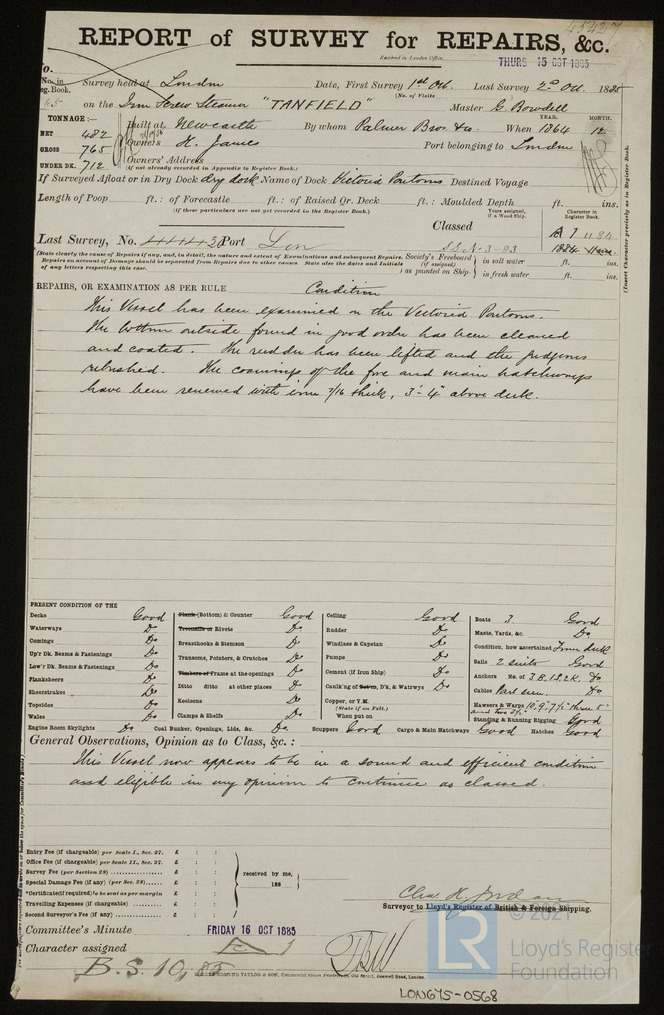 REPORT of SURVEY for REPAIRS, &c.
Received in London Office,
THURS 15 OCT 1885
No. in Reg. Book.
Survey held at London Date, First Survey 1st Oct. Last Survey 2nd Oct. 1885
(No. of Visits
on the Iron Screw Steamer "TANFIELD" Master G. Bowdell
TONNAGE:— Built at Newcastle By whom Palmer Bros. & Co. When 1864 12
YEAR. MONTH.
NET 482
GROSS 765
UNDER DK. 712
Owners H. James Port belonging to London
Owners' Address
(if not already recorded in Appendix to Register Book.)
If Surveyed Afloat or in Dry Dock dry dock Name of Dock Victoria Pontoons Destined Voyage
Length of Poop ft.: of Forecastle ft.: of Raised Qr. Deck ft.: Moulded Depth ft. ins.
(If these particulars are not yet recorded in the Register Book.)
Years assigned, if a Wood Ship.
Character in Register Book.
(Insert Character precisely as in Register Book.
Last Survey, No. Port Lon Classed A 1 11 84
S.S. No. 3-83 1884
(State clearly the cause of Repairs if any, and, in detail, the nature and extent of Examinations and subsequent Repairs.
Repairs on account of Damage should be separated from Repairs due to other causes. State also the dates and Initials
of any letters respecting this case.
Society's Freeboard (if assigned) as painted on Ship.
in salt water ft. ins.
in fresh water ft. ins.
REPAIRS, OR EXAMINATION AS PER RULE Condition
This Vessel has been examined on the Victoria Pontoons.
The bottom outside found in good order has been cleaned
and coated. The rudder has been lifted and the pudgeons
rebushed. The coamings of the fore and main hatchways
have been renewed with iron 7/16 thick, 3'-4" above deck.
PRESENT CONDITION OF THE
Decks Good
Waterways Do
Comings Do
Up'r Dk. Beams & Fastenings Do
Low'r Dk. Beams & Fastenings Do
Planksheers Do
Sheerstrakes Do
Topsides Do
Wales Do
Engine Room Skylights Do
Plank (Bottom) & Counter Good
Treenails or Rivets Do
Breasthooks & Stemson Do
Transoms, Pointers, & Crutches Do
Timbers of Frame at the openings Do
Ditto ditto at other places Do
Keelsons Do
Clamps & Shelfs Do
Coal Bunker, Openings, Lids, &c. Do.
Ceiling Good
Rudder Do
Windlass & Capstan Do
Pumps Do
Cement (if Iron Ship) Do
Caulk'ng of Bottom, D'k, & Watrwys Do
Copper, or Y.M.
(State if on Felt.)
When put on
Scuppers Good Cargo & Main Hatchways Good Hatches Good
Boats 3 Good
Masts, Yards, &c. Do
Condition, how ascertained From deck
Sails 2 suits Good
Anchors No. of 3B.1S.2K. Do
Cables Part seen. Do
Hawsers & Warps
Standing & Running Rigging Good
General Observations, Opinion as to Class, &c.:
This Vessel now appears to be in a sound and efficient condition
and eligible in my opinion to continue as classed.
Entry Fee (if chargeable) per Scale I., Sec. 27. £ : :
Office Fee (if chargeable) per Scale II., Sec. 27. £ : :
Survey Fee (per Section 28) £ : :
Special Damage Fee (if any) (per Sec. 28) £ : :
*Certificate(if required) to be sent as per margin £ : :
Travelling Expenses (if chargeable) £ : :
Second Surveyor's Fee (if any) £ : :
received by me,
188
Chas. H. Jordan
Surveyor to Lloyd's Register of British & Foreign Shipping.
Committee's Minute FRIDAY 16 OCT 1885
Character assigned A 1
B.S. 10,85
© 2021
LR
Lloyd's Register
Foundation
LON675-0568